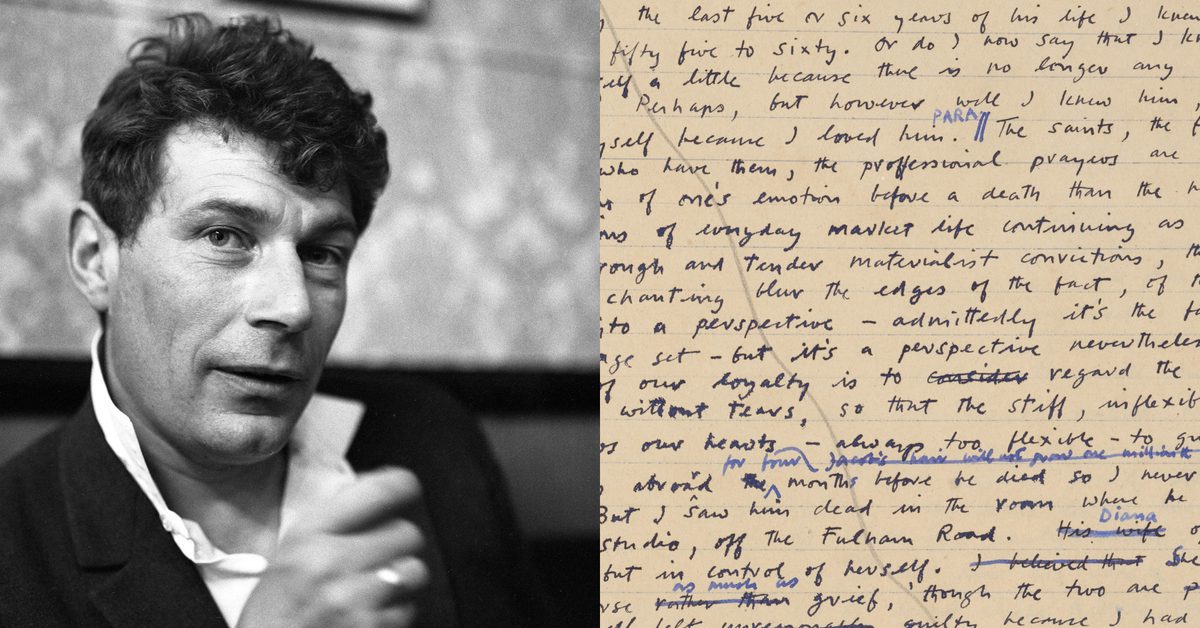 the last five or six years of his life I knew
fifty five to sixty. Or do I now say that I kn
self a little because there is no longer any
Perhaps, but however well I knew him,
PARA
yself because I loved him. // The saints, the f
who have them, the proffessional prayers are
of one's emotion before a death than the
ns of everyday market life continuing as
rough and tender materialist convictions, th
chanting blur the edges of the fact, of t
into a perspective – admittedly it's the fa
age set – but it's a perspective nevertheless
of our loyalty is to consider regard the
without tears, so that the stiff, inflexib
os our hearts – always too flexible – to gr
for four Jacob's chair will not
abroad the months before he died so I never
But I saw him dead in the room where he
Diana
studio, off the Fulham Road. His wife
but in control of herself. I believed that She
as much as
rse rather than grief, though the two are p
self felt unreasonably guilty because I had